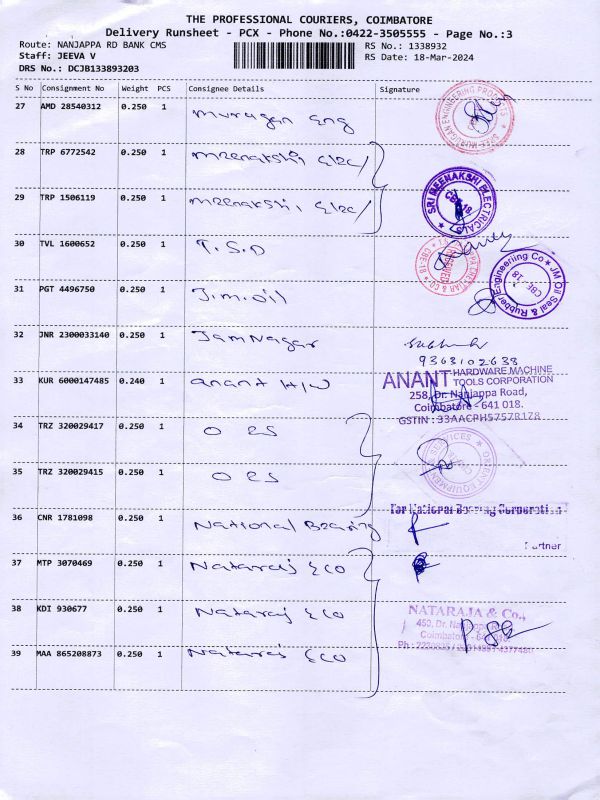 THE PROFESSIONAL COURIERS, COIMBATORE
Delivery Runsheet - PCX - Phone No.:0422-3505555 - Page No.:3
Route: NANJAPPA RD BANK CMS
RS No.: 1338932
Staff: JEEVA V
RS Date: 18-Mar-2024
DRS No.: DCJB133893203
S No Consignment No Weight PCS Consignee Details Signature
27 AMD 28540312 0.250 1 Murugan Eng
SREE MURUGAN ENGINEERING PRODUCTS
28 TRP 6772542 0.250 1 Meenakshi Elec/
29 TRP 1506119 0.250 1 Meenakshi Elec/
SRI MEENAKSHI ELECTRICALS
CBE-18
30 TVL 1600652 0.250 1 T.S.D
CBE-18
31 PGT 4496750 0.250 1 J.M.Oil
JM Oil Seal & Rubber Engineering Co
CBE-18
32 JNR 2300033140 0.250 1 Jamnagar
9363102638
33 KUR 6000147485 0.240 1 Anant H/W
ANANT HARDWARE MACHINE
TOOLS CORPORATION
258, Dr. Nanjappa Road,
Coimbatore - 641 018.
GSTIN : 33AACPH5757R1Z8
34 TRZ 320029417 0.250 1 O ES
ORIENT EQUIPMENT SERVICES
35 TRZ 320029415 0.250 1 O ES
36 CNR 1781098 0.250 1 National Bearing
For National Bearing Corporation
Partner
37 MTP 3070469 0.250 1 Nataraj & CO
38 KDI 930677 0.250 1 Nataraj & CO
NATARAJA & Co.,
450, Dr. Nanjappa
Coimbatore - 641 018
39 MAA 865208873 0.250 1 Nataraj & CO